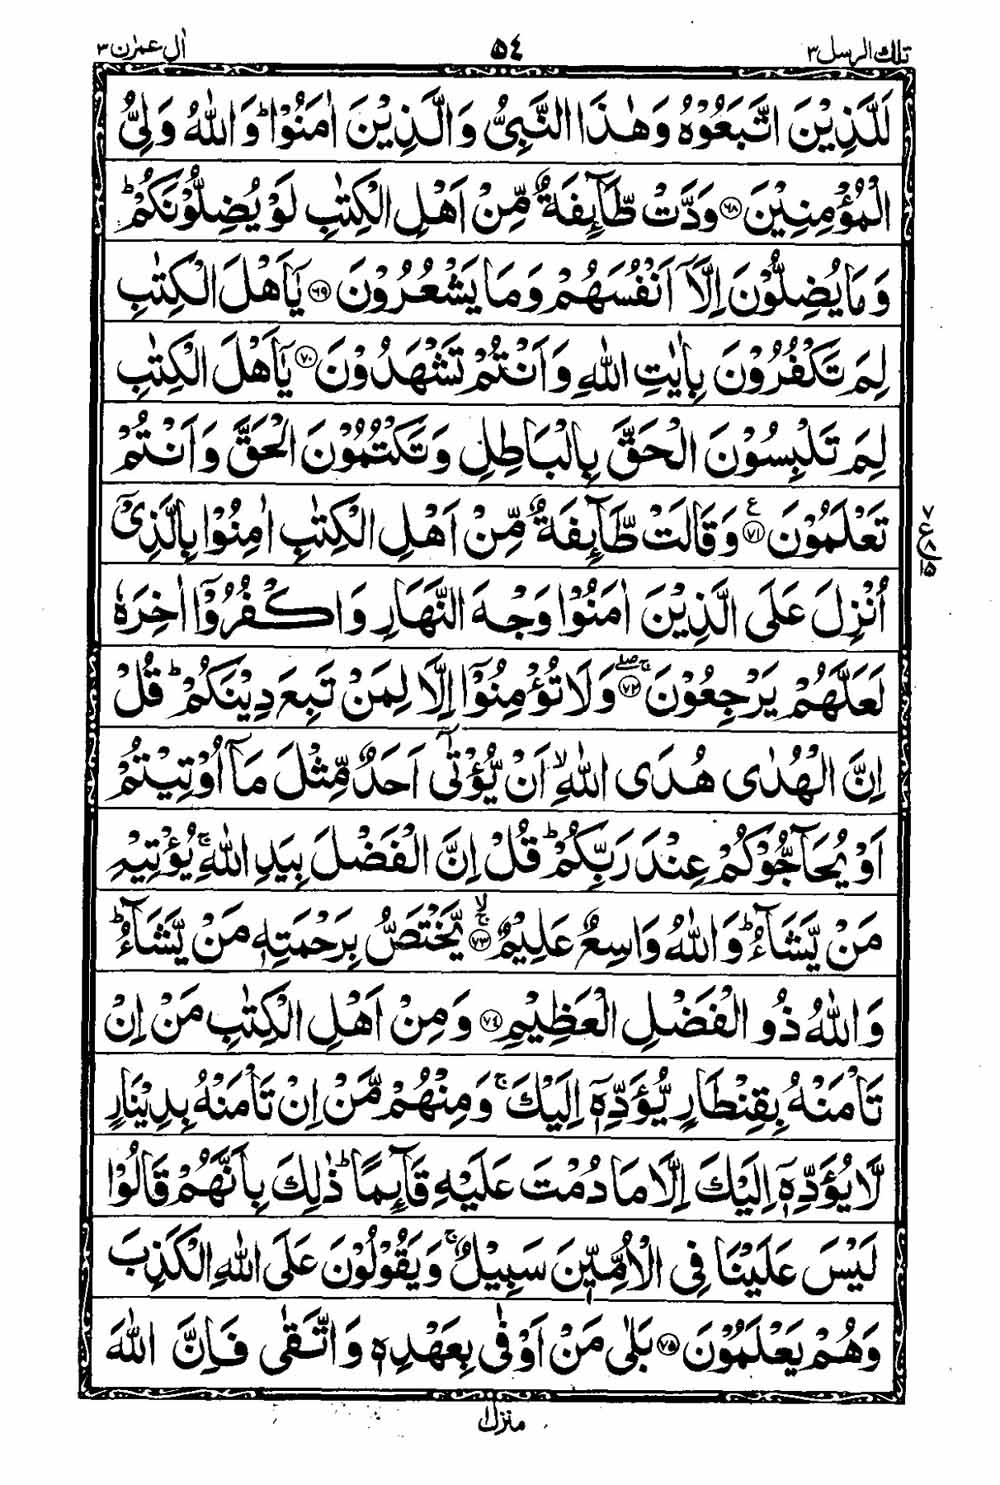 تلك الرسل ٣ ٥٤ اٰل عمرٰن ٣
لَلَّذِيْنَ اتَّبَعُوْهُ وَهٰذَا النَّبِيُّ وَالَّذِيْنَ اٰمَنُوْا ؕ وَاللّٰهُ وَلِيُّ
الْمُؤْمِنِيْنَ ﴿٦٨﴾ وَدَّتْ طَّآىِٕفَةٌ مِّنْ اَهْلِ الْكِتٰبِ لَوْ يُضِلُّوْنَكُمْ ؕ
وَمَا يُضِلُّوْنَ اِلَّآ اَنْفُسَهُمْ وَمَا يَشْعُرُوْنَ ﴿٦٩﴾ يٰٓاَهْلَ الْكِتٰبِ
لِمَ تَكْفُرُوْنَ بِاٰيٰتِ اللّٰهِ وَاَنْتُمْ تَشْهَدُوْنَ ﴿٧٠﴾ يٰٓاَهْلَ الْكِتٰبِ
لِمَ تَلْبِسُوْنَ الْحَقَّ بِالْبَاطِلِ وَتَكْتُمُوْنَ الْحَقَّ وَاَنْتُمْ
تَعْلَمُوْنَ ﴿٧١﴾ ع وَقَالَتْ طَّآىِٕفَةٌ مِّنْ اَهْلِ الْكِتٰبِ اٰمِنُوْا بِالَّذِيْٓ
٧ ع ٨ ١٥
اُنْزِلَ عَلَى الَّذِيْنَ اٰمَنُوْا وَجْهَ النَّهَارِ وَاكْفُرُوْٓا اٰخِرَهٗ
لَعَلَّهُمْ يَرْجِعُوْنَ ﴿٧٢﴾ ۚۖ وَلَا تُؤْمِنُوْٓا اِلَّا لِمَنْ تَبِعَ دِيْنَكُمْ ؕ قُلْ
اِنَّ الْهُدٰى هُدَى اللّٰهِ ۙ اَنْ يُّؤْتٰٓى اَحَدٌ مِّثْلَ مَآ اُوْتِيْتُمْ
اَوْ يُحَآجُّوْكُمْ عِنْدَ رَبِّكُمْ ؕ قُلْ اِنَّ الْفَضْلَ بِيَدِ اللّٰهِ ۚ يُؤْتِيْهِ
مَنْ يَّشَآءُ ؕ وَاللّٰهُ وَاسِعٌ عَلِيْمٌ ﴿٧٣﴾ ۚۙ يَّخْتَصُّ بِرَحْمَتِهٖ مَنْ يَّشَآءُ ؕ
وَاللّٰهُ ذُو الْفَضْلِ الْعَظِيْمِ ﴿٧٤﴾ وَمِنْ اَهْلِ الْكِتٰبِ مَنْ اِنْ
تَاْمَنْهُ بِقِنْطَارٍ يُّؤَدِّهٖٓ اِلَيْكَ ۚ وَمِنْهُمْ مَّنْ اِنْ تَاْمَنْهُ بِدِيْنَارٍ
لَّا يُؤَدِّهٖٓ اِلَيْكَ اِلَّا مَا دُمْتَ عَلَيْهِ قَآىِٕمًا ؕ ذٰلِكَ بِاَنَّهُمْ قَالُوْا
لَيْسَ عَلَيْنَا فِي الْاُمِّيّٖنَ سَبِيْلٌ ۚ وَيَقُوْلُوْنَ عَلَى اللّٰهِ الْكَذِبَ
وَهُمْ يَعْلَمُوْنَ ﴿٧٥﴾ بَلٰى مَنْ اَوْفٰى بِعَهْدِهٖ وَاتَّقٰى فَاِنَّ اللّٰهَ
منزل ١